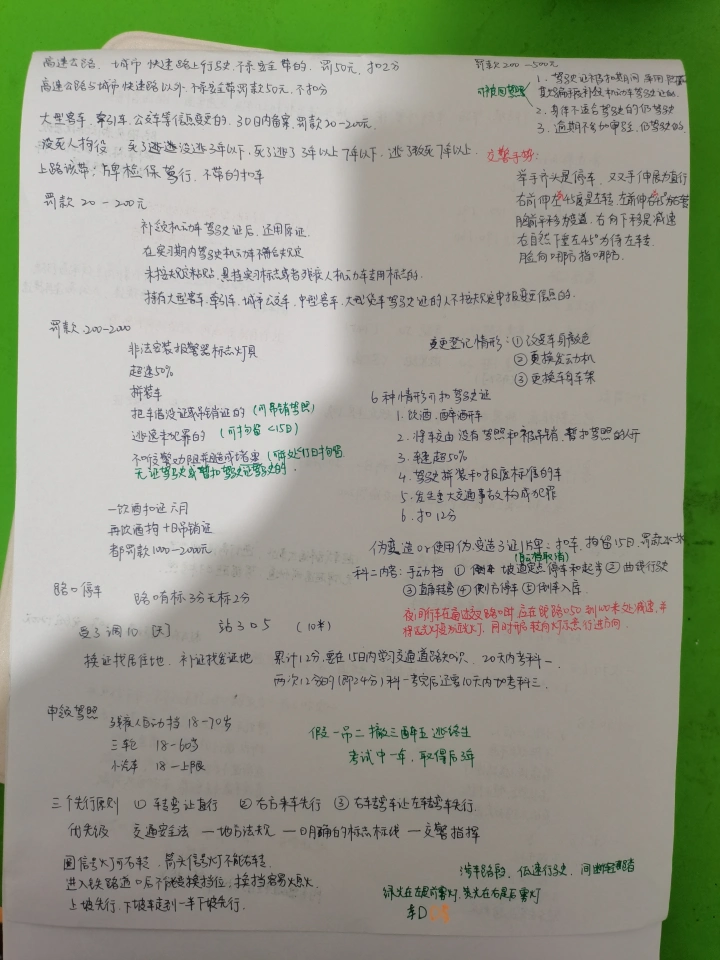 高速公路、城市快速路上行驶,不系安全带的,罚50元,扣2分
高速公路与城市快速路以外,不系安全带罚款50元,不扣分
大型客车,牵引车,公交车等信息变更的,30日内备案,罚款20-200元.
没死人拘役,死了逃逸没逃3年以下,死了逃了3年以上7年以下,逃了致死7年以上.
上路该带:牌检保驾行,不带的扣车
罚款200-500元
可并处吊销
1.驾驶证被扣期间
2.身体不适合驾驶的仍驾驶
3.逾期不参加审验,仍驾驶的
交警手势:
举手齐头是停车,双手伸展为直行
右前伸左45度是左转,左前伸右45°为右转
胸前平移为变道,右向下移是减速
右自然下垂左45°为待左转
脸向哪方指哪方.
罚款20-200元
补领机动车驾驶证后,还用原证.
在实习期内驾驶机动车不符合规定
未按规定粘贴、悬挂实习标志或者残疾人机动车专用标志的.
持有大型客车,牵引车,城市公交车,中型客车,大型货车驾驶证的人不按规定申报变更信息的.
罚款200-2000
非法安装报警器标志灯具
超速50%
拼装车
把车借没证或吊销证的(可吊销驾照)
逃逸未犯罪的(可拘留<15日)
不听交警劝阻并造成堵塞(可处<15日拘留
无证驾驶或暂扣驾驶证驾驶的.
变更登记情形:①改变车身颜色
②更换发动机
③更换车身车架
6种情形可扣驾驶证
1.饮酒、醉酒开车
2.将车交由没有驾照和被吊销、暂扣驾照的人开
3.车速超50%
4.驾驶拼装和报废标准的车
5.发生重大交通事故构成犯罪
6.扣12分
一饮酒扣证六月
再饮酒拘十日吊销证
都罚款1000-2000元
伪变造or使用伪、变造3证1牌:扣车,拘留15日,罚款
(自动挡取消)
科二内容:手动档 ①坡道定点停车和起步 ②曲线行驶
③直角转弯 ④侧方停车 ⑤倒车入库.
路口停车 路口有标3分无标2分
夜间行车在通过交叉路口时应在距路口50到100米处减速,并
将远光灯变为近光灯,同时开启转向灯示意行进方向.
弯3调10[灭] 站305 (10米)
换证找居住地,补证找发证地
累计12分,要在15日内学习交通道路知识、20天内考科一.
两次12分的(即24分)科一考完后还要10天内加考科三.
申领驾照
残疾人自动挡 18-70岁
三轮 18-60岁
小汽车 18-上限
假一吊二撤三醉五逃终生
考试中一年,取得后3年
三个先行原则 ①转弯让直行 ②右方来车先行 ③右转弯车让左转弯车先行.
优先级 交通安全法—地方法规—明确的标志标线—交警指挥
圆信号灯可右转,箭头信号灯不能右转.
进入铁路道口后不能变换挡位,换挡容易熄火.
上坡先行,下坡车走到一半下坡先行.
涉水路段,低速行驶,间断轻踏
绿光在左是前雾灯,黄光在右是后雾灯
车D